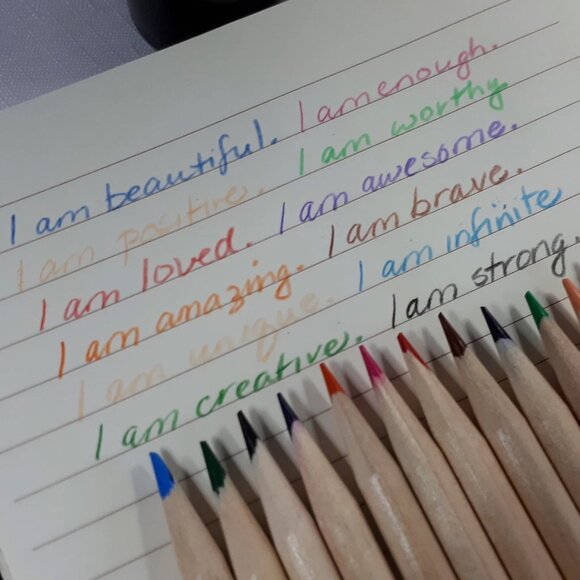 I am beautiful. I am enough.
I am positive. I am worthy
I am loved. I am awesome.
I am amazing. I am brave.
I am unique. I am infinite
I am creative. I am strong.